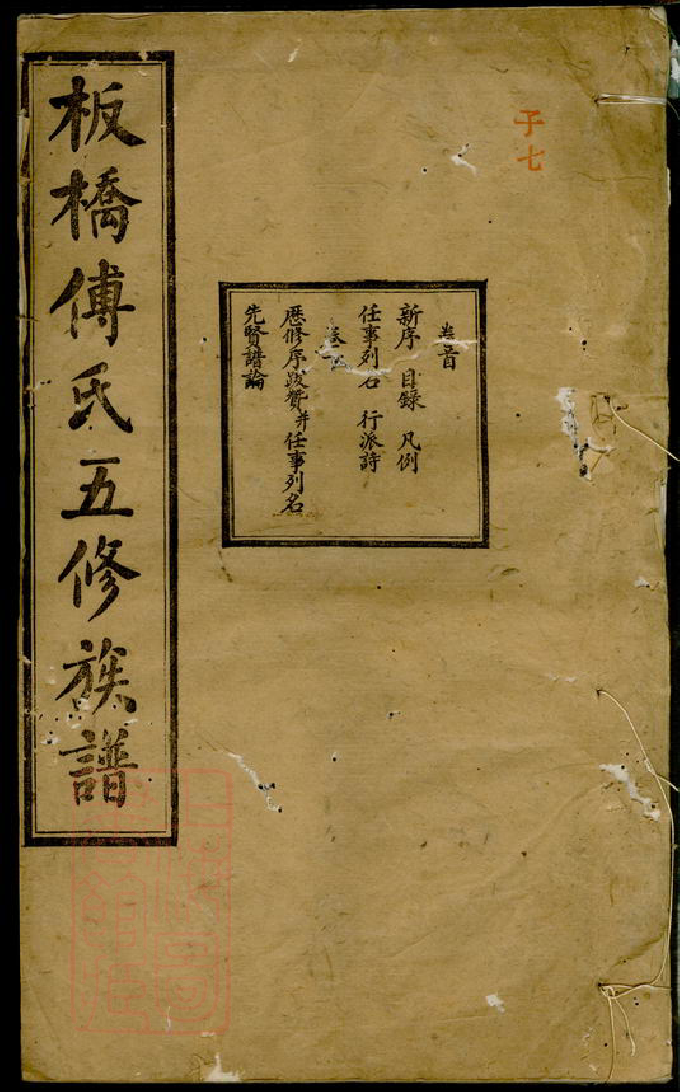 子七
卷首
新序 目錄 凡例
任事列名 行派詩
卷
歷修序跋贊并任事列名
先賢譜論
板橋傅氏五修族譜